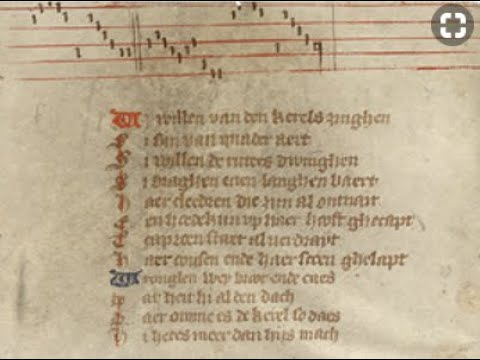 Wi willen van den kerels zinghen
Si sin van quader aert
Si willen de ruters dwinghen
Si draghen enen langhen baert
Haer cleedren die zijn al ontnait
Een hoedekin up haer hooft ghecapt
Tcaproen staet al verdrayt
Haer cousen ende haer scoen ghelapt
Wronglen wey broot ende caes
Dat heit hi al den dach
Daer omme es de kerel so daes
Hi hetes meer dan hijs mach